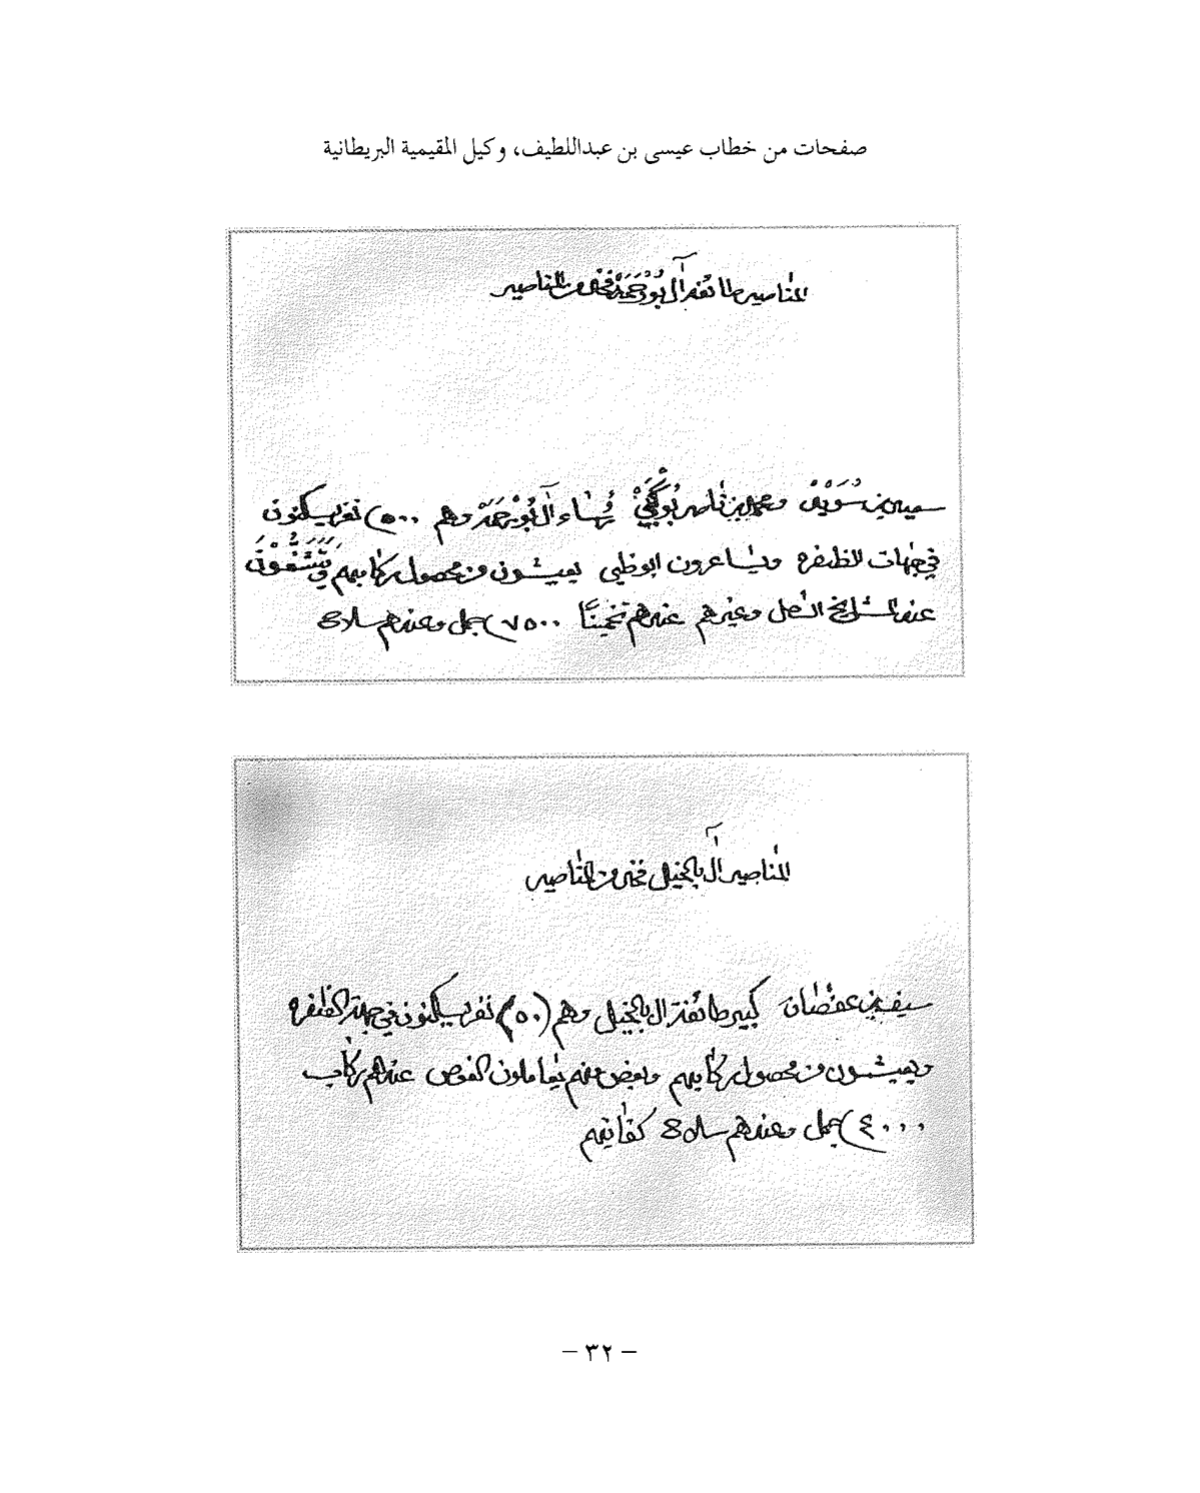 صفحات من خطاب عيسى بن عبداللطيف، وكيل المقيمية البريطانية
المناصير طائفة آل بُورَحَمَة فخذ من المناصير
سعيد بن سُوَيِّف ومحمد بن ناصر آل بُورحمَة وهم (٥٠٠) نفر يسكنون
في جهات الظفره ويساعدون ابوظبي يعيشون من محصول ركابهم
عند المشايخ وغيرهم عندهم تخمينًا (٧٥٠٠) جمل وعندهم سلاح
المناصير آل بالخيل فخذ من المناصير
سيف بن عفصان كبير طائفة ال بالخيل وهم نفر يسكنون في جهة الظفره
ويعيشون من محصول ركابهم وبعض منهم يعاملون الغوص عندهم ركاب
(٤٠٠٠) جمل وعندهم سلاح كفايتهم
– ٣٢ –